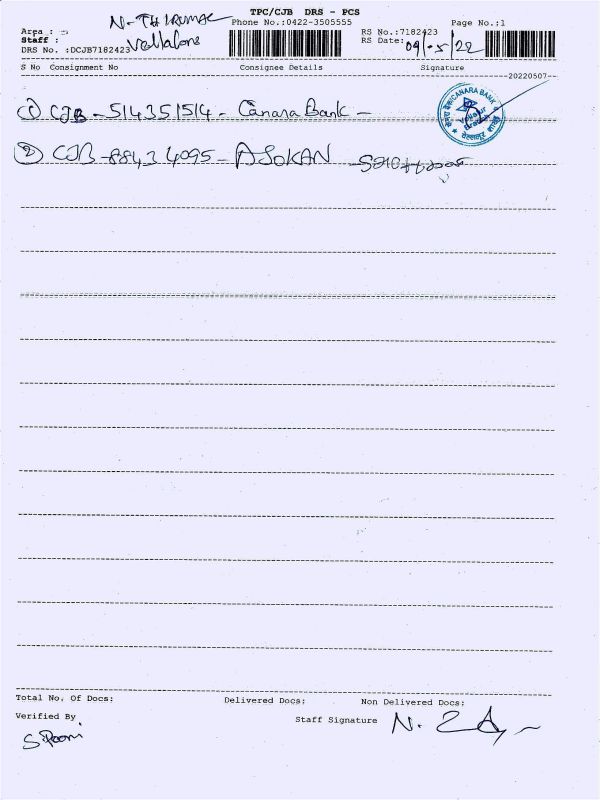 TPC/CJB DRS - PCS
N. THIRUMAL
Area :
Phone No.:0422-3505555
Page No.:1
Staff : Vellalore
RS No.:7182423
DRS No. :DCJB7182423
RS Date: 09/5/22
S No Consignment No Consignee Details Signature
20220507
① CJB - 514351514 - Canara Bank -
CANARA BANK
② CJB - 88434095 - ASOKAN -
Total No. Of Docs: Delivered Docs: Non Delivered Docs:
Verified By
Staff Signature